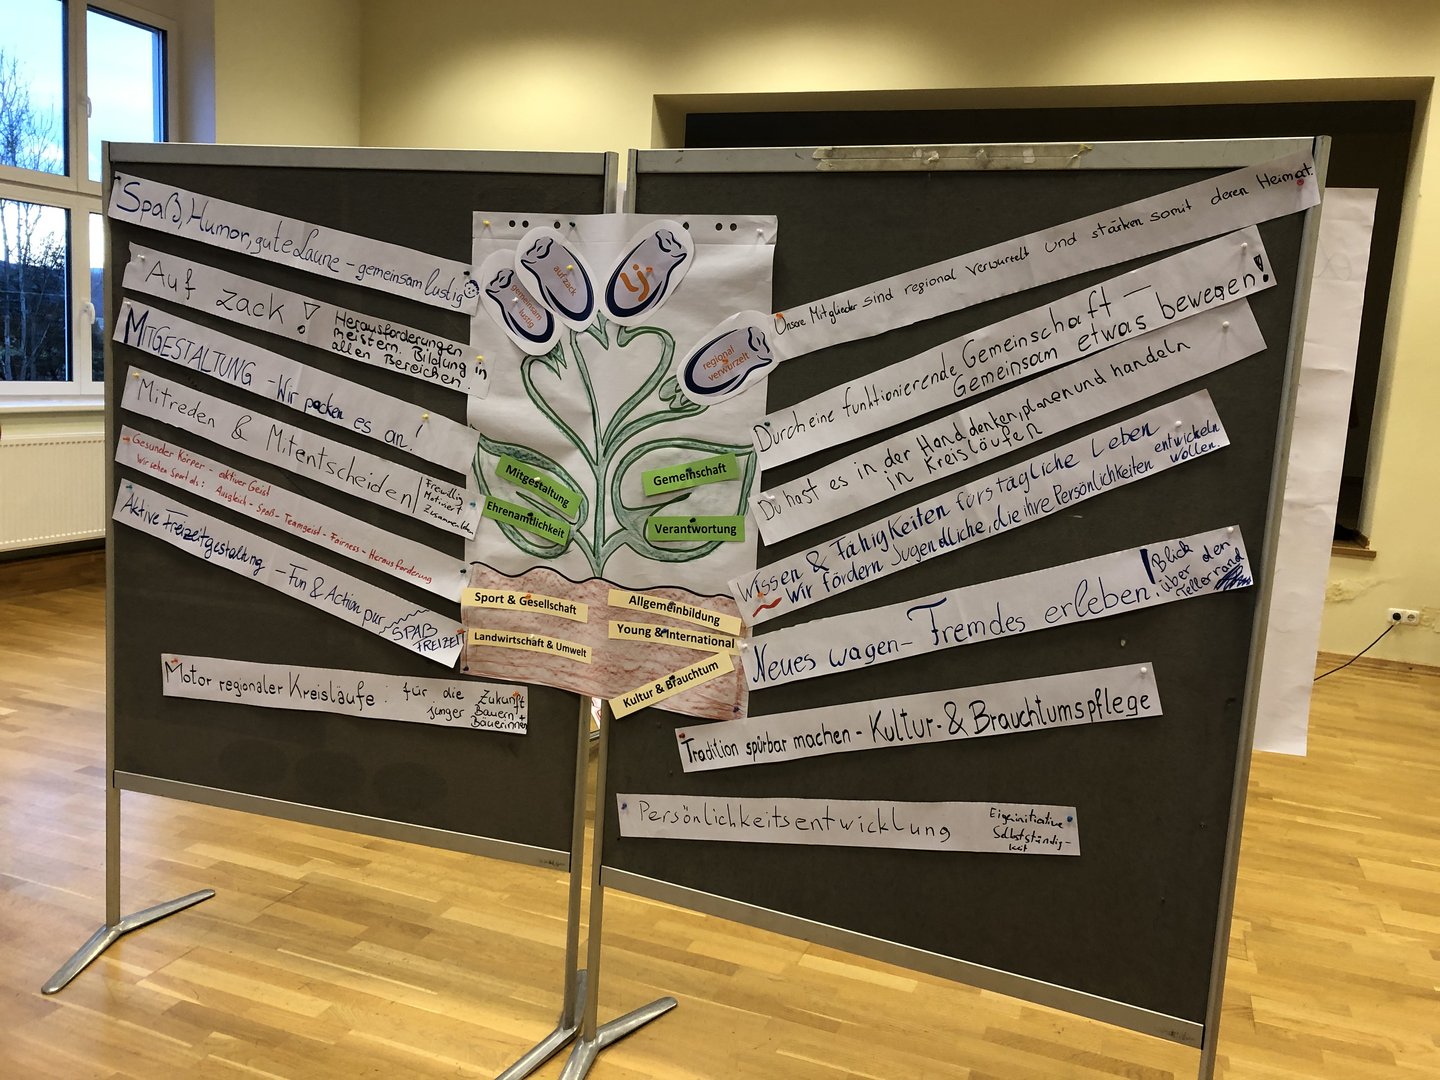 Spaß, Humor, gute Laune - gemeinsam lustig
Auf zack!
Herausforderungen
meistern. Bildung in
allen Bereichen.
MITGESTALTUNG - Wir packen es an!
Mitreden & Mitentscheiden
Freiwillig
Motiviert
Gesunder Körper - aktiver Geist
Wir sehen Sport als: Ausgleich - Spaß - Teamgeist - Fairness - Herausforderung
Aktive Freizeitgestaltung - Fun & Action pur
SPAß
FREIZEIT
Motor regionaler Kreisläufe: für die Zukunft
junger Bauern +
Bäuerinnen
gemeinsam
lustig
auf zack
lj
regional
&
verwurzelt
Mitgestaltung
Ehrenamtlichkeit
Gemeinschaft
Verantwortung
Sport & Gesellschaft
Landwirtschaft & Umwelt
Allgemeinbildung
Young & International
Kultur & Brauchtum
Unsere Mitglieder sind regional verwurzelt und stärken somit deren Heimat.
Durch eine funktionierende Gemeinschaft -
Gemeinsam etwas bewegen!
Du hast es in der Hand denken, planen und handeln
in Kreisläufen
Wissen & Fähigkeiten fürs tägliche Leben
Wir fördern Jugendliche, die ihre Persönlichkeiten entwickeln
wollen.
Neues wagen - Fremdes erleben!
Blick
über den
Tellerrand
Tradition spürbar machen - Kultur- & Brauchtumspflege
Persönlichkeitsentwicklung
Eigeninitiative
Selbstständig-
keit